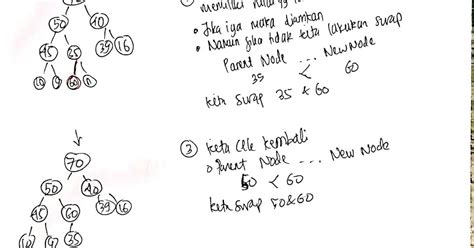 50 40
45 35 39 16
60
memiliki
Jika iya maka diamkan
Namun jika tidak kita lakukan swap
Parent Node ... New Node
35 < 60
kita swap 35 & 60
70
50 40
45 60 39 16
35
③ kita cek kembali
Parent Node ... New Node
50 < 60
kita swap 50 & 60